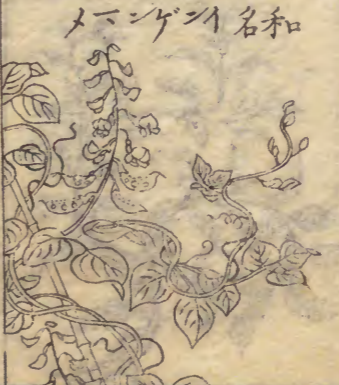 和名インゲンマメ